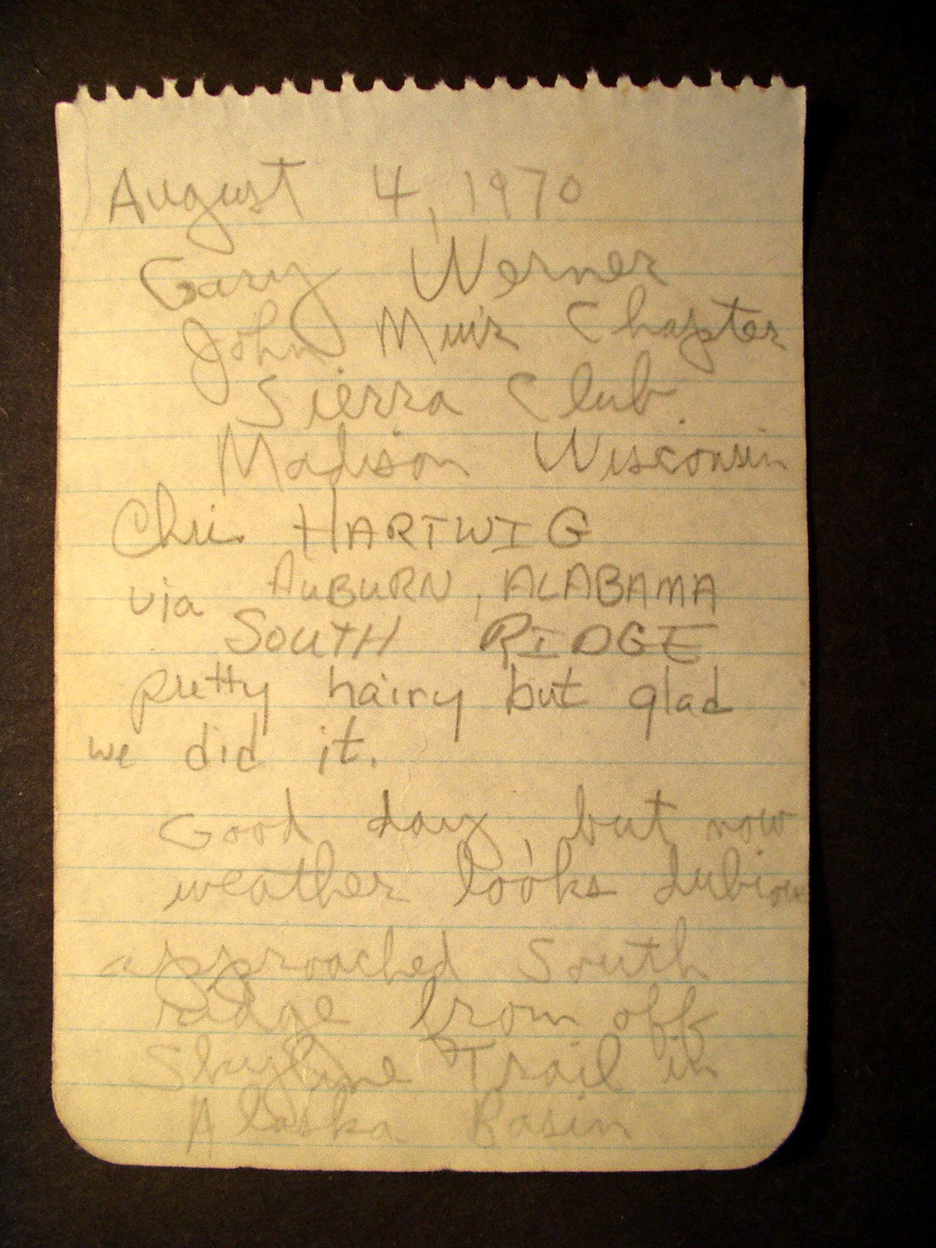 August 4, 1970
Gary Werner
John Muir Chapter
Sierra Club
Madison Wisconsin
Chris HARTWIG
via AUBURN, ALABAMA
SOUTH RIDGE
pretty hairy but glad
we did it.
Good day, but now
weather looks dubious
approached South
ridge from off
Skyline Trail in
Alaska Basin